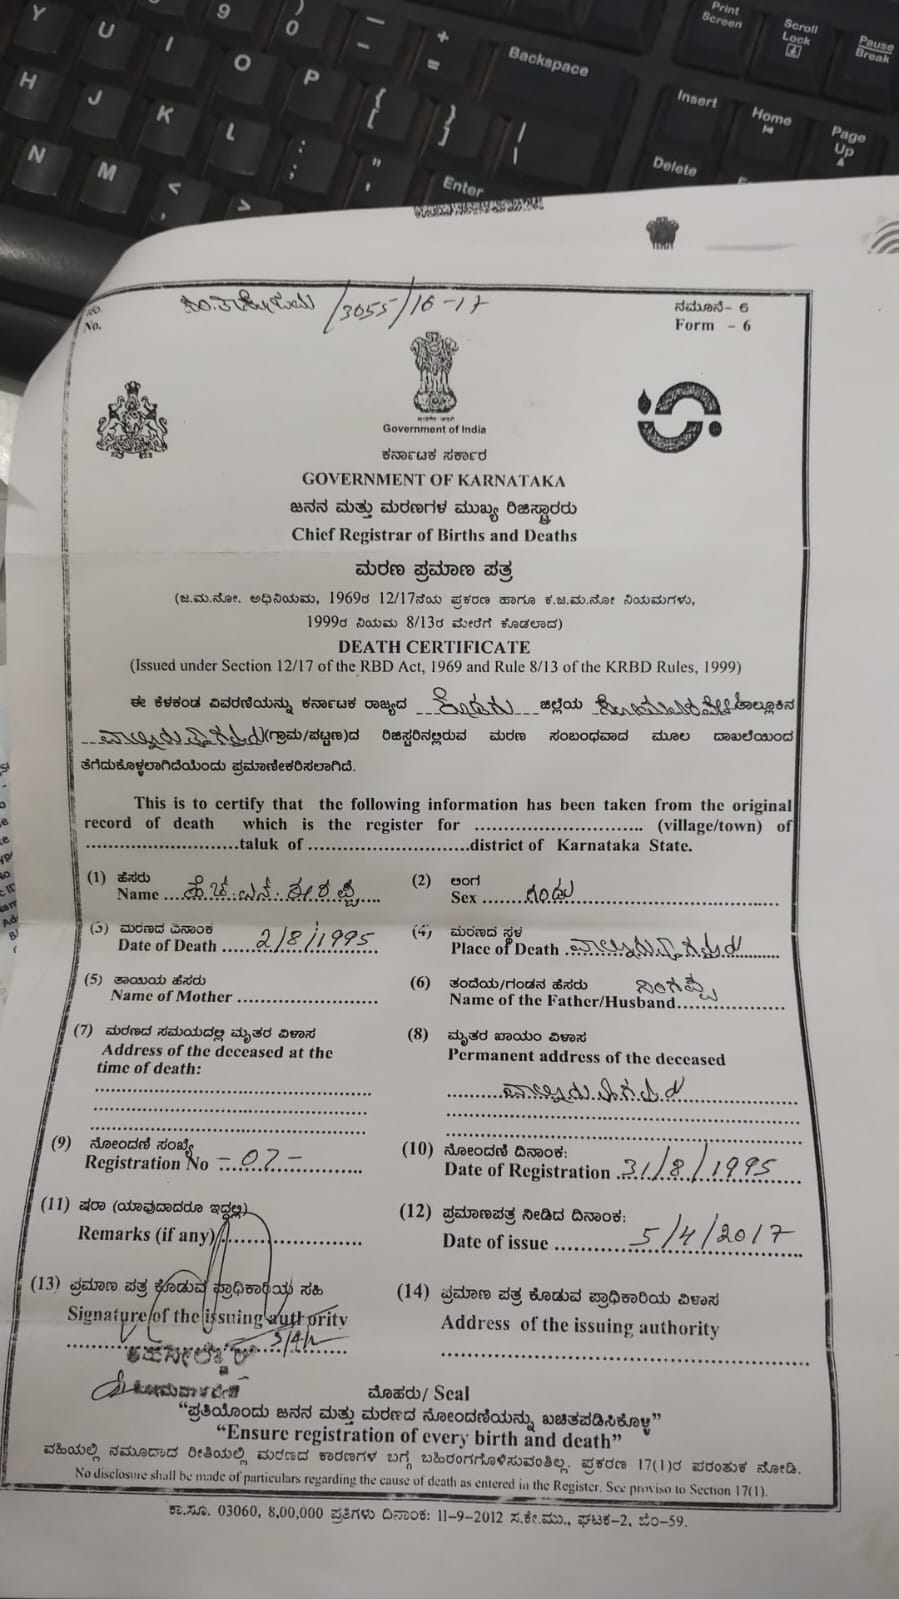 Y U I 9 O ) 0 P — – + = Backspace Print Screen Scroll Lock Pause Break
H J K L : ; { [ } ] | \ Insert Home Page Up
N M < , > " ' Enter Delete
ನಂ. No. /3055/16-17
ನಮೂನೆ- 6
Form - 6
Government of India
ಕರ್ನಾಟಕ ಸರ್ಕಾರ
GOVERNMENT OF KARNATAKA
ಜನನ ಮತ್ತು ಮರಣಗಳ ಮುಖ್ಯ ರಿಜಿಸ್ಟ್ರಾರರು
Chief Registrar of Births and Deaths
ಮರಣ ಪ್ರಮಾಣ ಪತ್ರ
(ಜ.ಮ.ನೋ. ಅಧಿನಿಯಮ, 1969ರ 12/17ನೆಯ ಪ್ರಕರಣ ಹಾಗೂ ಕ.ಜ.ಮ.ನೋ ನಿಯಮಗಳು,
1999ರ ನಿಯಮ 8/13ರ ಮೇರೆಗೆ ಕೊಡಲಾದ)
DEATH CERTIFICATE
(Issued under Section 12/17 of the RBD Act, 1969 and Rule 8/13 of the KRBD Rules, 1999)
ಈ ಕೆಳಕಂಡ ವಿವರಣೆಯನ್ನು ಕರ್ನಾಟಕ ರಾಜ್ಯದ ಕೊಡಗು ಜಿಲ್ಲೆಯ ಸೋಮವಾರಪೇಟೆ ತಾಲ್ಲೂಕಿನ
(ಗ್ರಾಮ/ಪಟ್ಟಣ)ದ ರಿಜಿಸ್ಟರಿನಲ್ಲಿರುವ ಮರಣ ಸಂಬಂಧವಾದ ಮೂಲ ದಾಖಲೆಯಿಂದ
ತೆಗೆದುಕೊಳ್ಳಲಾಗಿದೆಯೆಂದು ಪ್ರಮಾಣೀಕರಿಸಲಾಗಿದೆ.
This is to certify that the following information has been taken from the original
record of death which is the register for .............................. (village/town) of
...........................taluk of .............................district of Karnataka State.
(1) ಹೆಸರು
Name ಹೆಚ್.ಎನ್. ಈರಪ್ಪ
(2) ಲಿಂಗ
Sex ಗಂಡು
(3) ಮರಣದ ದಿನಾಂಕ
Date of Death 2/8/1995
(4) ಮರಣದ ಸ್ಥಳ
Place of Death
(5) ತಾಯಿಯ ಹೆಸರು
Name of Mother .........................
(6) ತಂದೆಯ/ಗಂಡನ ಹೆಸರು
Name of the Father/Husband ನಿಂಗಪ್ಪ
(7) ಮರಣದ ಸಮಯದಲ್ಲಿ ಮೃತರ ವಿಳಾಸ
Address of the deceased at the
time of death:
(8) ಮೃತರ ಖಾಯಂ ವಿಳಾಸ
Permanent address of the deceased
(9) ನೋಂದಣಿ ಸಂಖ್ಯೆ
Registration No - 07 -
(10) ನೋಂದಣಿ ದಿನಾಂಕ:
Date of Registration 31/8/1995
(11) ಷರಾ (ಯಾವುದಾದರೂ ಇದ್ದಲ್ಲಿ)
Remarks (if any)
(12) ಪ್ರಮಾಣಪತ್ರ ನೀಡಿದ ದಿನಾಂಕ:
Date of issue 5/4/2017
(13) ಪ್ರಮಾಣ ಪತ್ರ ಕೊಡುವ ಪ್ರಾಧಿಕಾರಿಯ ಸಹಿ
Signature of the issuing authority
(14) ಪ್ರಮಾಣ ಪತ್ರ ಕೊಡುವ ಪ್ರಾಧಿಕಾರಿಯ ವಿಳಾಸ
Address of the issuing authority
ತಹಸೀಲ್ದಾರ್
ಸೋಮವಾರಪೇಟೆ
ಮೊಹರು/ Seal
“ಪ್ರತಿಯೊಂದು ಜನನ ಮತ್ತು ಮರಣದ ನೋಂದಣಿಯನ್ನು ಖಚಿತಪಡಿಸಿಕೊಳ್ಳಿ”
“Ensure registration of every birth and death”
ವಹಿಯಲ್ಲಿ ನಮೂದಾದ ರೀತಿಯಲ್ಲಿ ಮರಣದ ಕಾರಣಗಳ ಬಗ್ಗೆ ಬಹಿರಂಗಗೊಳಿಸುವಂತಿಲ್ಲ. ಪ್ರಕರಣ 17(1)ರ ಪರಂತುಕ ನೋಡಿ.
No disclosure shall be made of particulars regarding the cause of death as entered in the Register. See proviso to Section 17(1).
ಕಾ.ಸೂ. 03060, 8,00,000 ಪ್ರತಿಗಳು ದಿನಾಂಕ: 11-9-2012 ಸ.ಕೇ.ಮು., ಘಟಕ-2, ಬೆಂ-59.